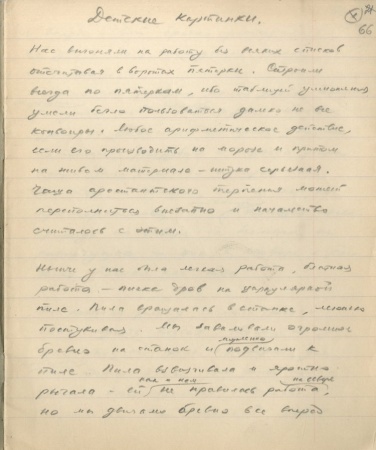 Детские картинки.
66
Нас выгоняли на работу без всяких списков
отсчитывая в воротах пятерки. Строили
всегда по пятеркам, ибо таблицей умножения
умели бегло пользоваться далеко не все
конвоиры. Любое арифметическое действие,
если его производить на морозе и притом
на живом материале – штука серьезная.
Чаша арестантского терпения может
переполниться внезапно и начальство
считалось с этим.
Нынче у нас была легкая работа, блатная
работа – пилка дров на циркулярной
пиле. Пила вращалась в станке, легонько
постукивая. Мы заваливали огромное
бревно на станок и медленно подвигали к
пиле. Пила взвизгивала и яростно
рычала – ей как и нам не нравилась работа на севере,
но мы двигали бревно все вперед